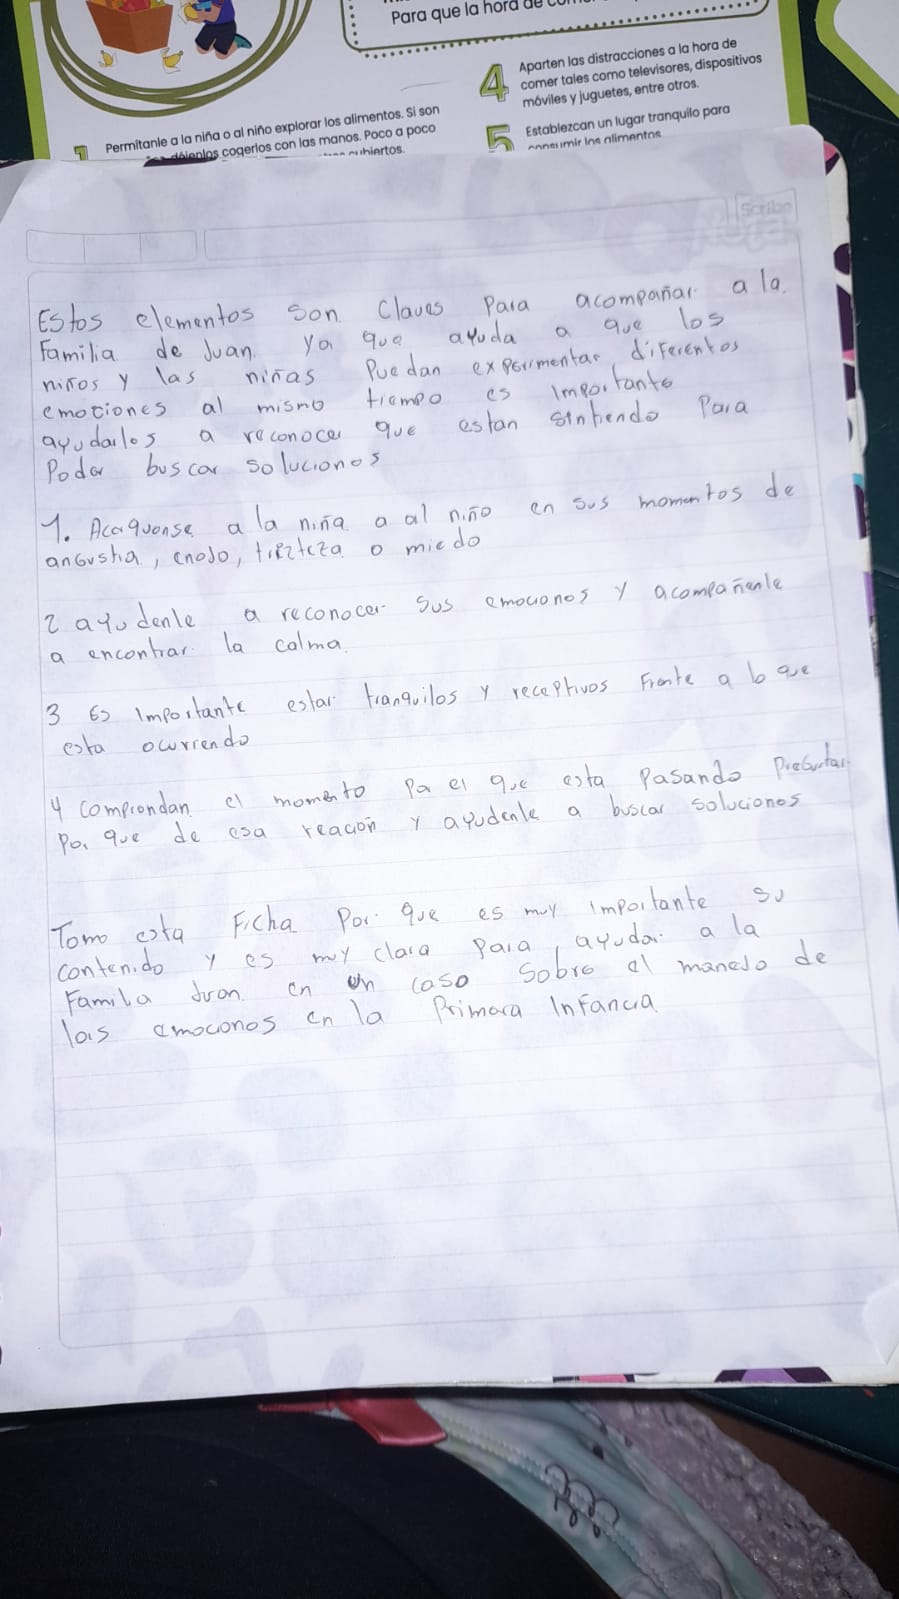 Para que la hora de
4 Aparten las distracciones a la hora de
comer tales como televisores, dispositivos
móviles y juguetes, entre otros.
5 Establezcan un lugar tranquilo para
consumir los alimentos
Permítanle a la niña o al niño explorar los alimentos. Si son
déjenlos cogerlos con las manos. Poco a poco
cubiertos.
Scribe
Estos elementos son Claves Para acompañar a la
Familia de Juan. ya que ayuda a que los
niños y las niñas Puedan experimentar diferentes
emociones al mismo tiempo es Importante
ayudarlos a reconocer que estan sintiendo Para
Poder buscar soluciones
1. Acerquense a la niña a al niño en sus momentos de
angustia, enojo, tirzteza o miedo
2 ayudenle a reconocer sus emociones y acompañenle
a encontrar la calma.
3 Es Importante estar tranquilos y receptivos Frente a lo que
esta ocurriendo
4 Comprendan el momento Por el que esta Pasando Preguntar
Por que de esa reación y ayudenle a buscar soluciones
Tomo esta Ficha Por que es muy importante su
contenido y es muy clara Para, ayudar a la
Familia Juan en un caso Sobre el manejo de
las emociones en la Primera Infancia.